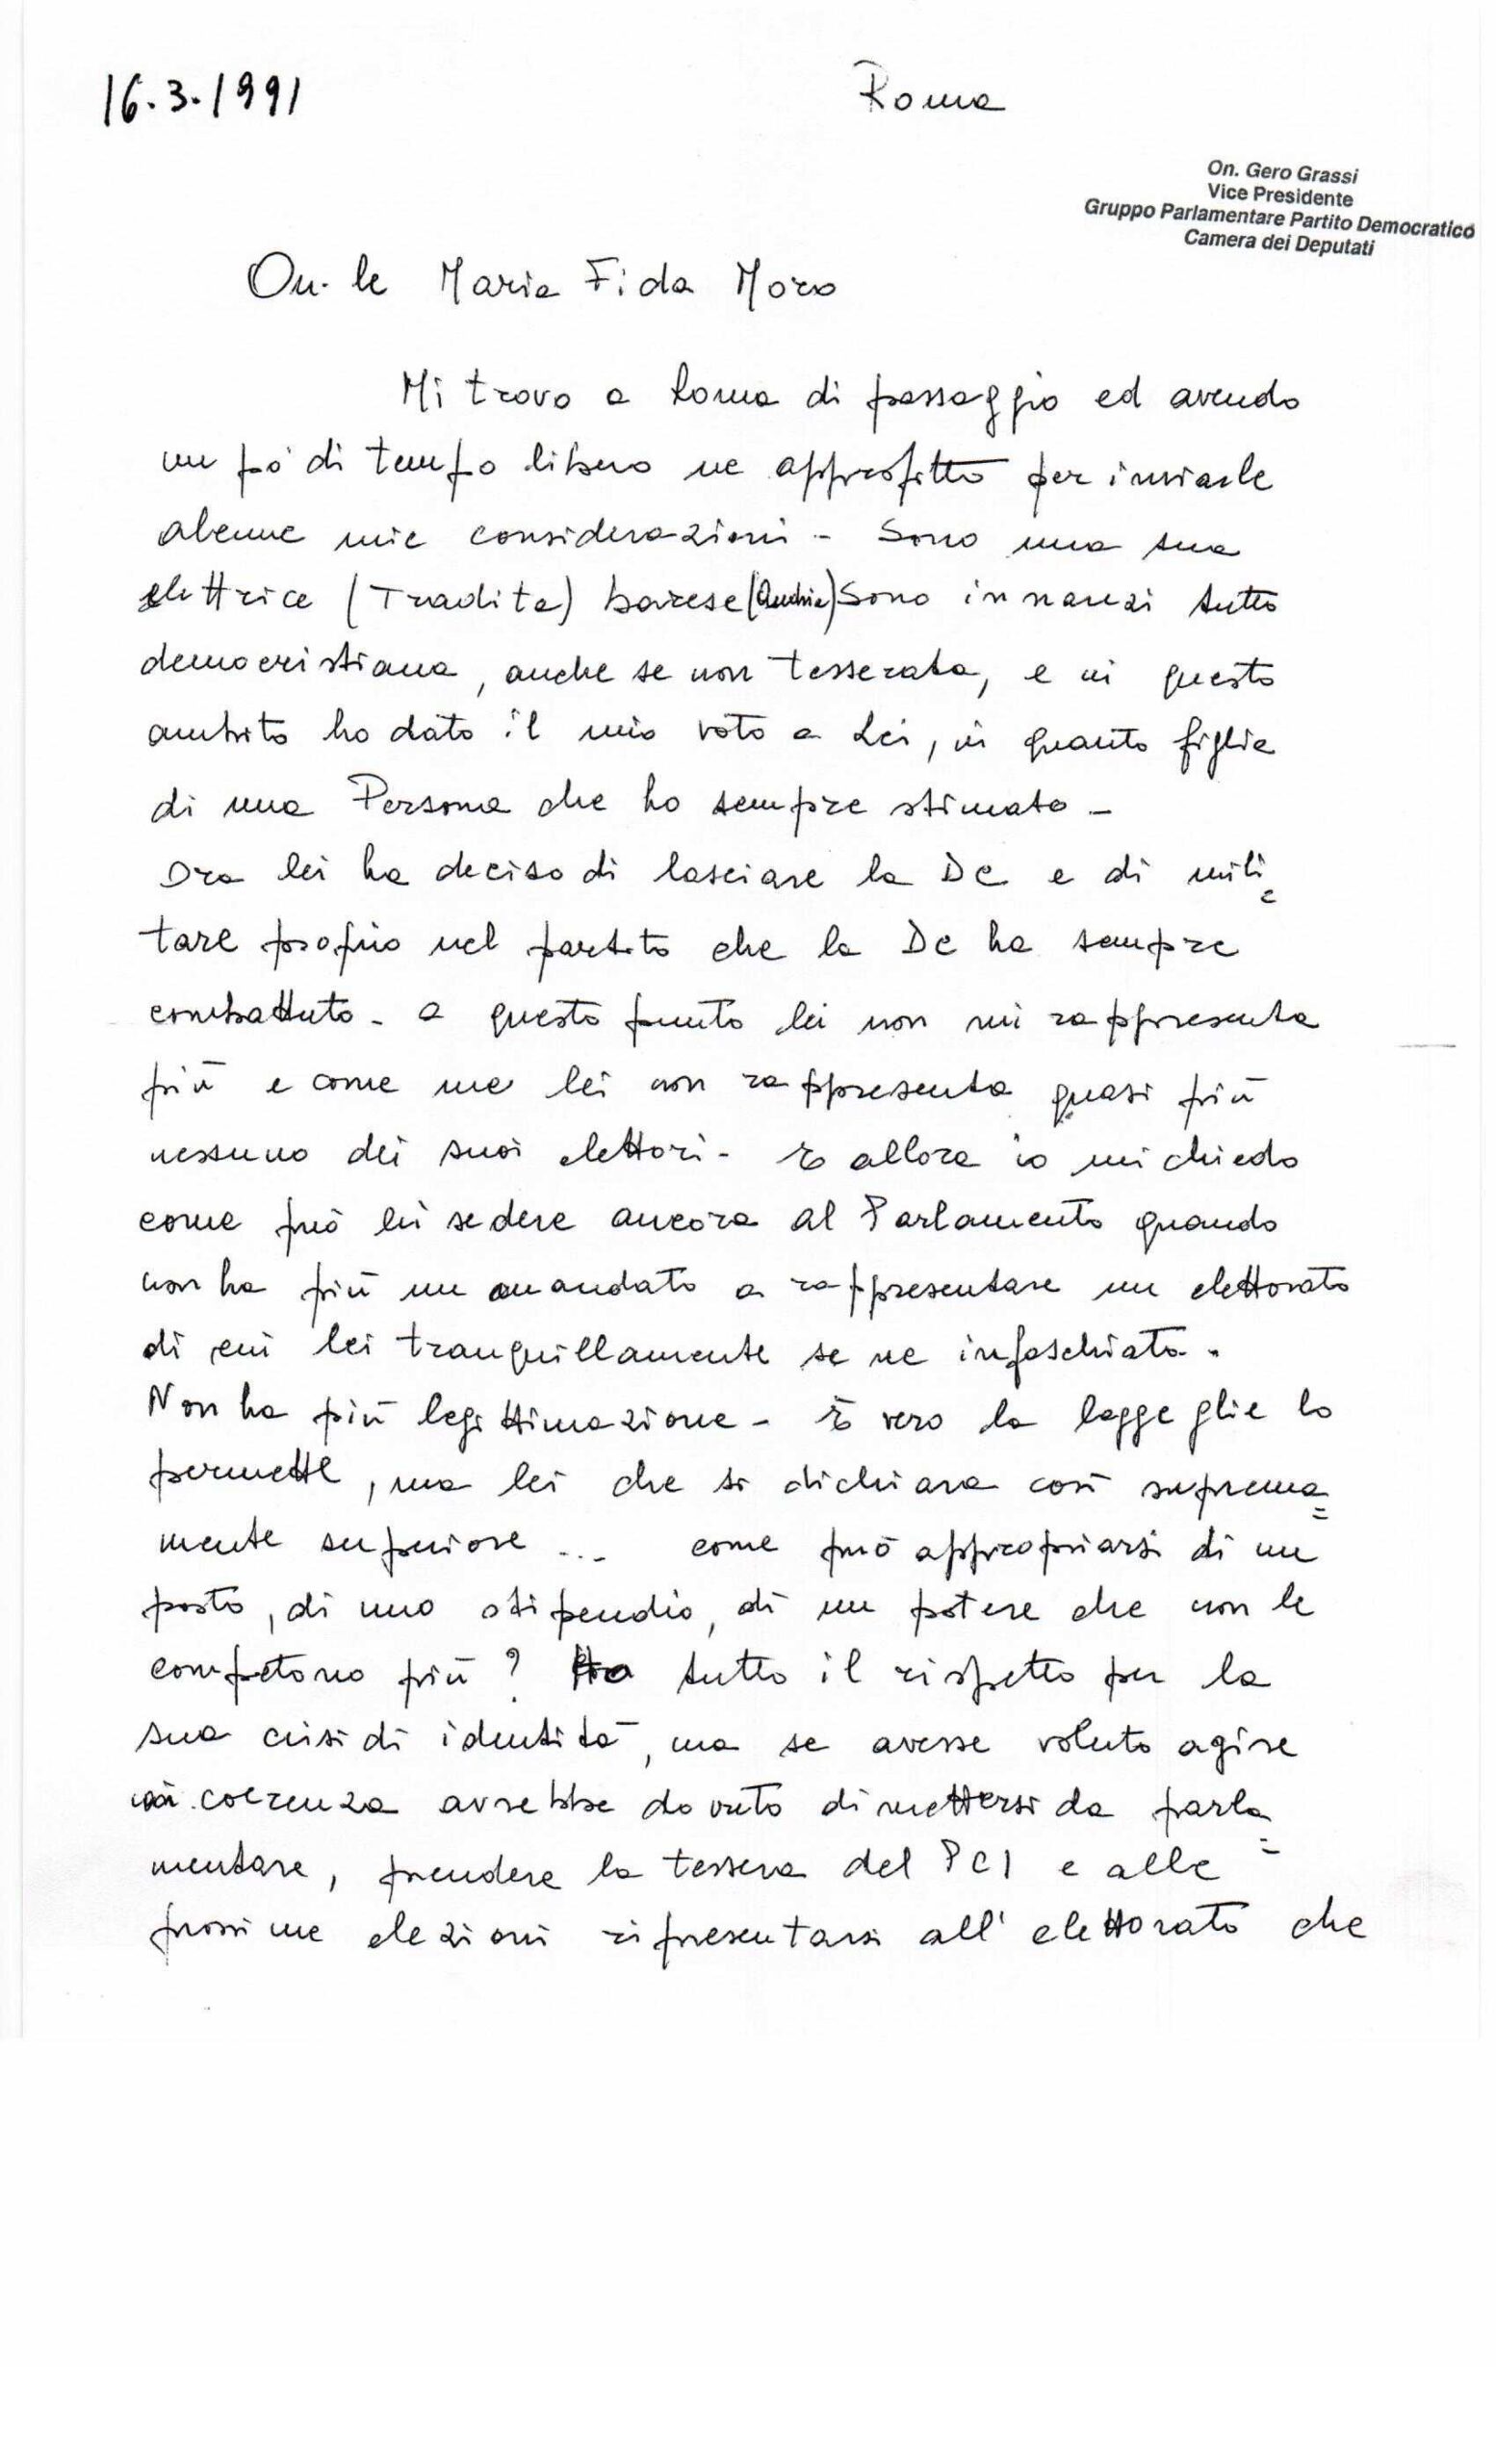 16.3.1991
Roma
On. Gero Grassi
Vice Presidente
Gruppo Parlamentare Partito Democratico
Camera dei Deputati
On.le Maria Fida Moro
Mi trovo a Roma di passaggio ed avendo
un pò di tempo libero ne approfitto per inviarle
alcune mie considerazioni - Sono una sua
elettrice (Tradita) barese Sono innanzi tutto
democristiana, anche se non tesserata, e in questo
ambito ho dato il mio voto a Lei, in quanto figlia
di una Persona che ho sempre stimato -
Ora lei ha deciso di lasciare la DC e di mili=
tare proprio nel partito che la DC ha sempre
combattuto - a questo punto lei non mi rappresenta
più e come me lei non rappresenta quasi più
nessuno dei suoi elettori - E allora io mi chiedo
come può lei sedere ancora al Parlamento quando
non ha più un mandato a rappresentare un elettorato
di cui lei tranquillamente se ne infischiata.
Non ha più legittimazione - È vero la legge glie lo
permette, ma lei che si dichiara così suprema=
mente superiore ... come può appropriarsi di un
posto, di uno stipendio, di un potere che non le
competono più? Ho tutto il rispetto per la
sua crisi di identità, ma se avesse voluto agire
in coerenza avrebbe dovuto dimettersi da parla=
mentare, prendere la tessera del PCI e alle
prossime elezioni ripresentarsi all'elettorato che